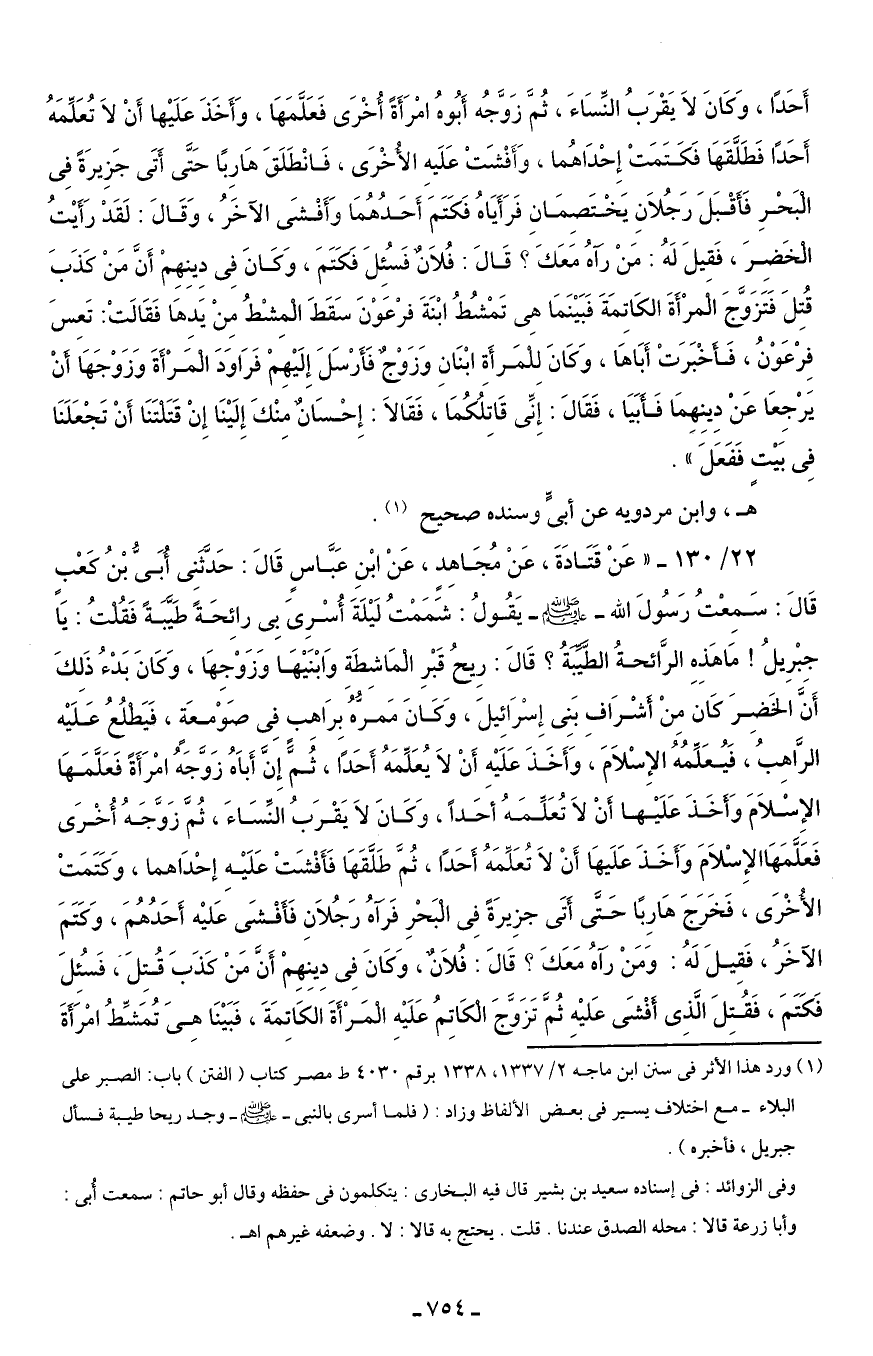 أَحَدًا ، وَكَانَ لَا يَقْرَبُ النِّسَاءَ ، ثُمَّ زَوَّجُه أَبُوهُ امْرَأَةً أُخْرَى فَعَلَّمَهَا ، وَأَخَذَ عَلَيْها أَنْ لَا تُعَلِّمَهُ
أَحَدًا فَطَلَّقَهَا فَكَتَمَتْ إِحْدَاهُما ، وَأَفْشَتْ عَلَيهِ الأُخْرَى ، فَانْطَلَقَ هَارِبًا حَتَّى أَتَى جَزِيرَةً فى
الْبَحْرِ فَأَقْبَلَ رَجُلاَنِ يَخْتَصِمَانِ فَرَأَيَاهُ فَكَتَمَ أَحَدُهُمَا وَأَفْشَى الآخَرُ ، وَقَالَ : لَقَدْ رَأَيْتُ
الْخَضِرَ ، فَقِيلَ لَهُ : مَنْ رَآهُ مَعَكَ ؟ قَالَ : فُلاَنٌ فَسُئِلَ فَكَتَمَ ، وَكَانَ فى دِينِهِمْ أَنَّ مَنْ كَذَبَ
قُتِلَ فَتَزَوَّجَ الْمَرْأَةَ الكَاتِمَةَ فَبَيْنَمَا هِى تَمْشُطُ ابْنَةَ فِرْعَوْنَ سَقَطَ الْمِشْطُ مِنْ يَدِهَا فَقَالَتْ: تَعِسَ
فِرْعَوْنُ ، فَأَخْبَرَتْ أَبَاهَا ، وَكَانَ لِلْمَرأَةِ ابْنَانِ وَزَوْجٌ فَأَرْسَلَ إِلَيْهِمْ فَرَاوَدَ الْمَرْأَةَ وَزَوْجَهَا أَنْ
يَرْجِعَا عَنْ دِينِهِمَا فَأَبَيَا ، فَقَالَ : إِنِّى قَاتِلُكُمَا ، فَقَالاَ : إِحْسَانٌ مِنْكَ إِلَيْنَا إِنْ قَتَلْتَنَا أَنْ تَجْعَلَنَا
فِى بَيْتٍ فَفَعَلَ » .
هـ ، وابن مردويه عن أبىٍّ وسنده صحيح (١) .
٢٢/ ١٣٠ ـ « عَنْ قَتَادَةَ ، عَنْ مُجَاهِدٍ ، عَنْ ابْنِ عَبَّاسٍ قَالَ : حَدَّثَنِى أُبَىُّ بْنُ كَعْبٍ
قَالَ : سَمِعْتُ رَسُولَ اللهِ ـ ﷺ ـ يَقُولُ : شَمَمْتُ لَيْلَةَ أُسْرِىَ بِى رَائِحَةً طَيِّبَةً فَقُلْتُ : يَا
جِبْرِيلُ ! مَاهَذِهِ الرَّائِحَةُ الطَّيِّبَةُ ؟ قَالَ : رِيحُ قَبْرِ الْمَاشِطَةِ وَابْنَيْهَا وَزَوْجِهَا ، وَكَانَ بَدْءُ ذَلِكَ
أَنَّ الْخَضِرَ كَانَ مِنْ أَشْرَافِ بَنِى إِسْرَائِيلَ ، وَكَانَ مَمَرُّهُ بِرَاهِبٍ فِى صَوْمَعَةٍ ، فَيَطْلُعُ عَلَيْهِ
الرَّاهِبُ ، فَيُعَلِّمُهُ الإِسْلاَمَ ، وَأَخَذَ عَلَيْهِ أَنْ لاَ يُعَلِّمَهُ أَحَدًا ، ثُمَّ إِنَّ أَبَاهُ زَوَّجَهُ امْرَأَةً فَعَلَّمَهَا
الإِسْلاَمَ وَأَخَذَ عَلَيْهَا أَنْ لاَ تُعَلِّمَهُ أَحَداً ، وَكَانَ لاَ يَقْرَبُ النِّسَاءَ ، ثُمَّ زَوَّجَهُ أُخْرَى
فَعَلَّمَهَاالإِسْلاَمَ وَأَخَذَ عَلَيهَا أَنْ لاَ تُعَلِّمَهُ أَحَدًا ، ثُمَّ طَلَّقَهَا فَأَفْشَتْ عَلَيْهِ إِحْدَاهما ، وَكَتَمَتْ
الأُخْرَى ، فَخَرَجَ هَارِبًا حَتَّى أَتَى جزِيرَةً فِى الْبَحْرِ فَرَآهُ رَجُلاَنِ فَأَفْشَى عَلَيْهِ أَحَدُهُمَ ، وَكَتَمَ
الآخَرُ ، فَقِيلَ لَهُ : وَمَنْ رَآهُ مَعَكَ ؟ قَالَ : فُلاَنٌ ، وَكَانَ فِى دِينِهِمْ أَنَّ مَنْ كَذَبَ قُتِلَ ، فَسُئِلَ
فَكَتَمَ ، فَقُتِلَ الَّذِى أَفْشَى عَلَيْهِ ثُمَّ تَزَوَّجَ الْكَاتِمُ عَلَيْهِ الْمَرْأَةَ الكَاتِمَةَ ، فَبَيْنَا هِىَ تُمَشِّطُ امْرَأَةَ
(١) ورد هذا الأثر فى سنن ابن ماجه ٢/ ١٣٣٧، ١٣٣٨ برقم ٤٠٣٠ ط مصر كتاب ( الفتن ) باب: الصبر على
البلاء ـ مع اختلاف يسير فى بعض الألفاظ وزاد : ( فلما أسرى بالنبى ـ ﷺ ـ وجد ريحا طيبة فسأل
جبريل ، فأخبره ) .
وفى الزوائد : فى إسناده سعيد بن بشير قال فيه البخارى : يتكلمون فى حفظه وقال أبو حاتم : سمعت أُبى :
وأبا زرعة قالا : محله الصدق عندنا . قلت . يحتج به قالا : لا . وضعفه غيرهم اهـ .
ـ ٧٥٤ ـ